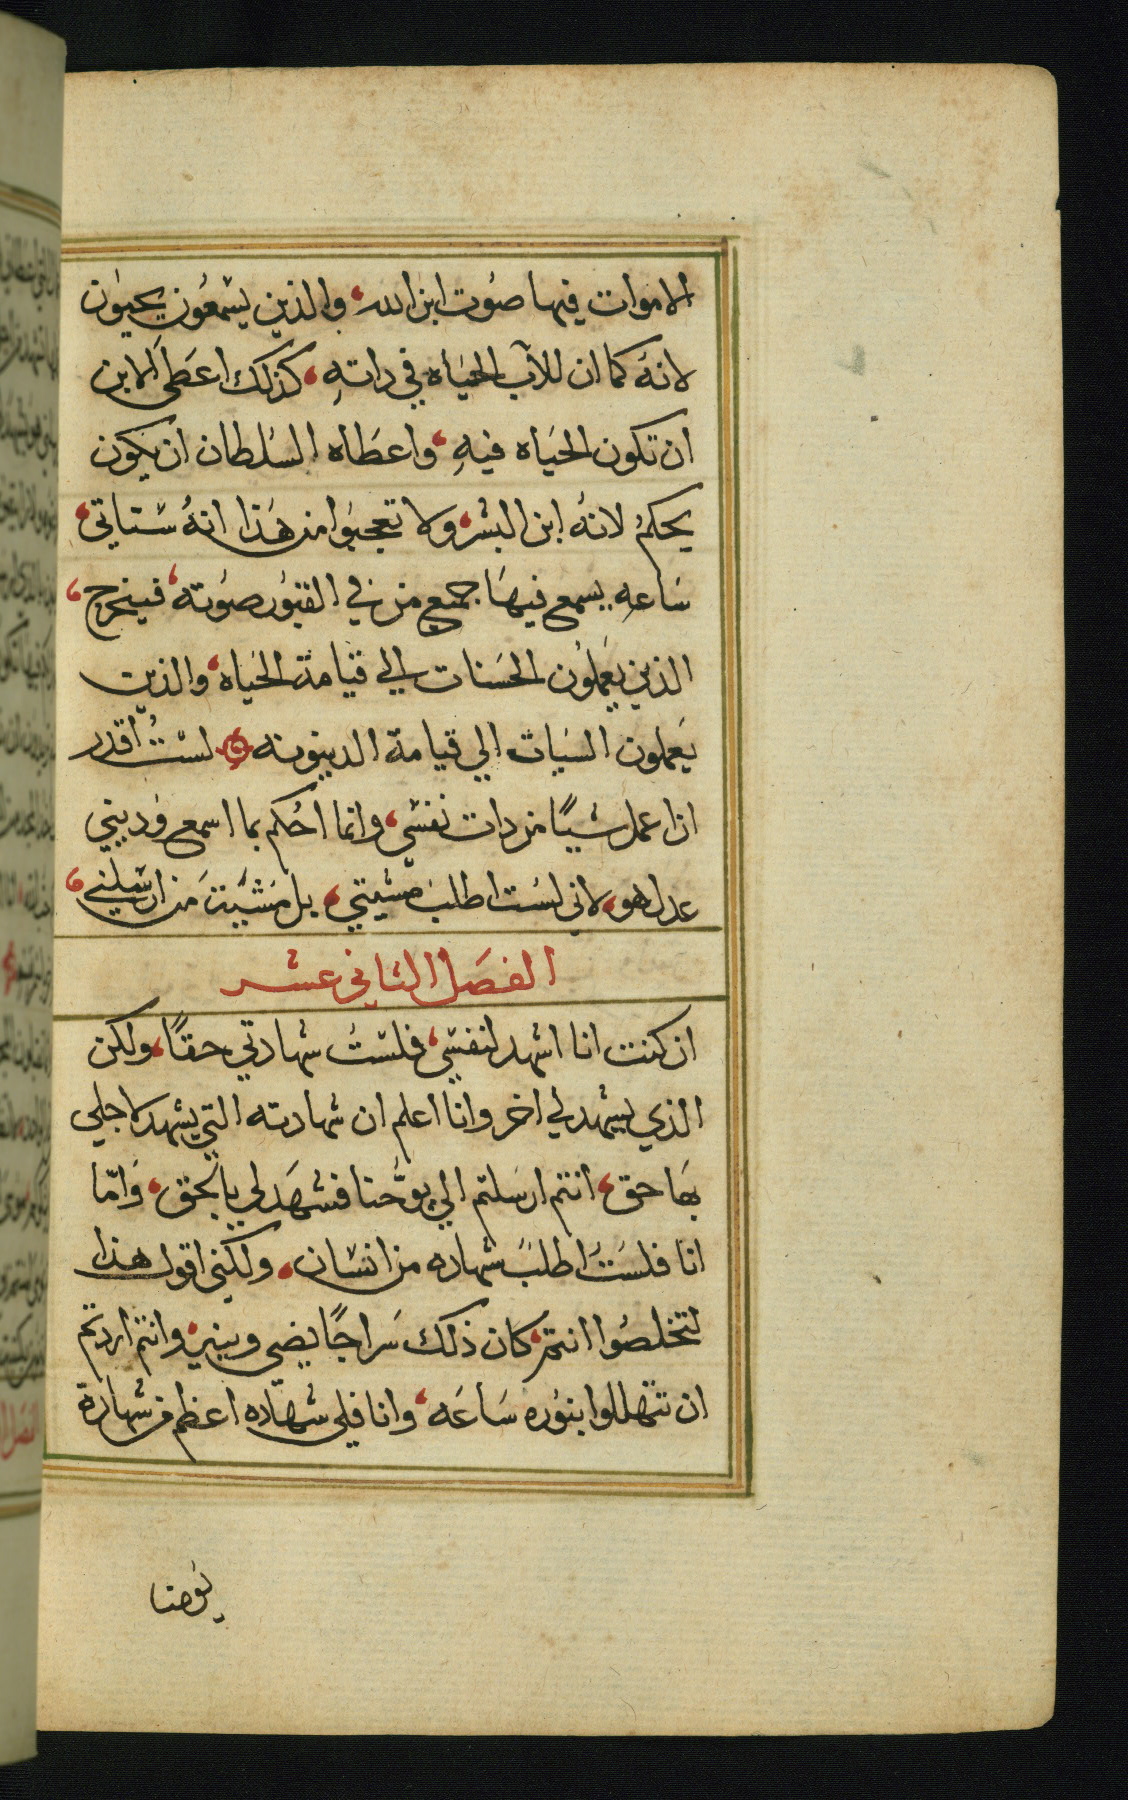 الاموات فيها صُوت ابن الله، والذين يسْمعُون يحيَون
لانهُ كما ان للآب الحيَاه في داتهِ، كذلك اعَطَى الابن
ان تكون الحيَاه فيهِ، واعطَاه السُلطان ان يكون
يحكمُ لانهُ ابن البشر، ولا تعجبَوا من هَذا انهُ سْتاتي،
سَاعهِ يسمع فيهَا جميع من في القبَور صوُته، فيخرج،
الذين يَعملوُن الحَسنات الي قيامة الحَياه، والذين
يَعملون السَيات الي قيامة الدينونه لسْتُ اقدر
ان اعمل شيًا من دات نفسْي، وانما احُكم بما اسمع وُديني
عدل هو، لاني لسْت اطلبَ مشيتي، بل مَشيَة من ارسْلني،
الفصَل الثاني عشر
ان كنت انا اشهد لنفسْي، فلسْتُ شهادتي حقًا، ولكن
الذي يشهد لي اخر وانا اعلم ان شهادته التي يشهد لاجلي
بهَا حق، انتم ارسَلتم الي يوحَّنا فشهَد لي بالحق، وَامّا
انا فلسَتُ اطلبَ شهاده من انسْان، ولكني اقول هذا
لتخلصُوا انتم، كان ذلك سَراجًا يضي وينير، وانتم اردتم
ان تتهللوا بنوُره سَاعَه، وانا فلي شهَاده اعظم من شهادة
يوحنا